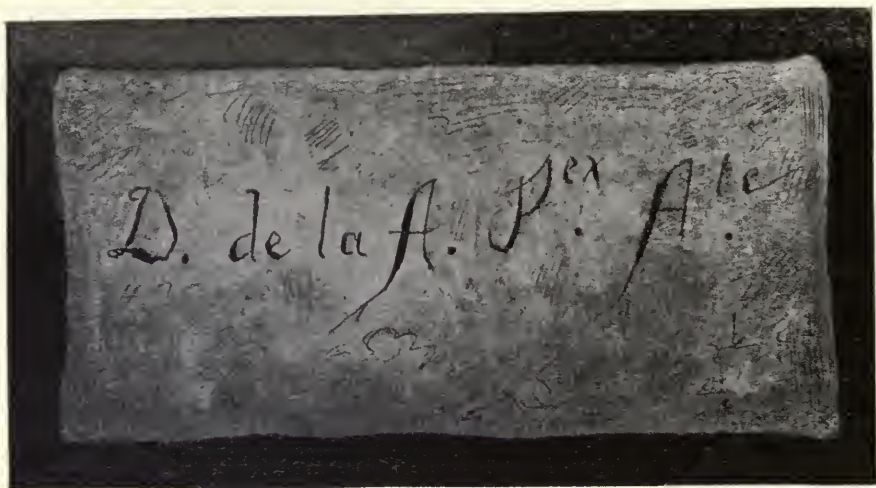 D. de la A. Pex. Ale.